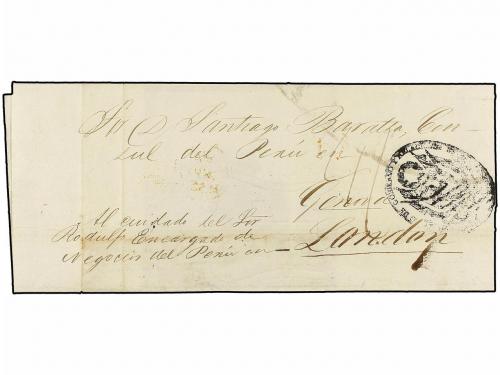 Sor D. Santiago Baratta, Con-
sul del Perú en
Genova
Al cuidado del Sor
Rodulfo Encargado de
Negocios del Perú en
London